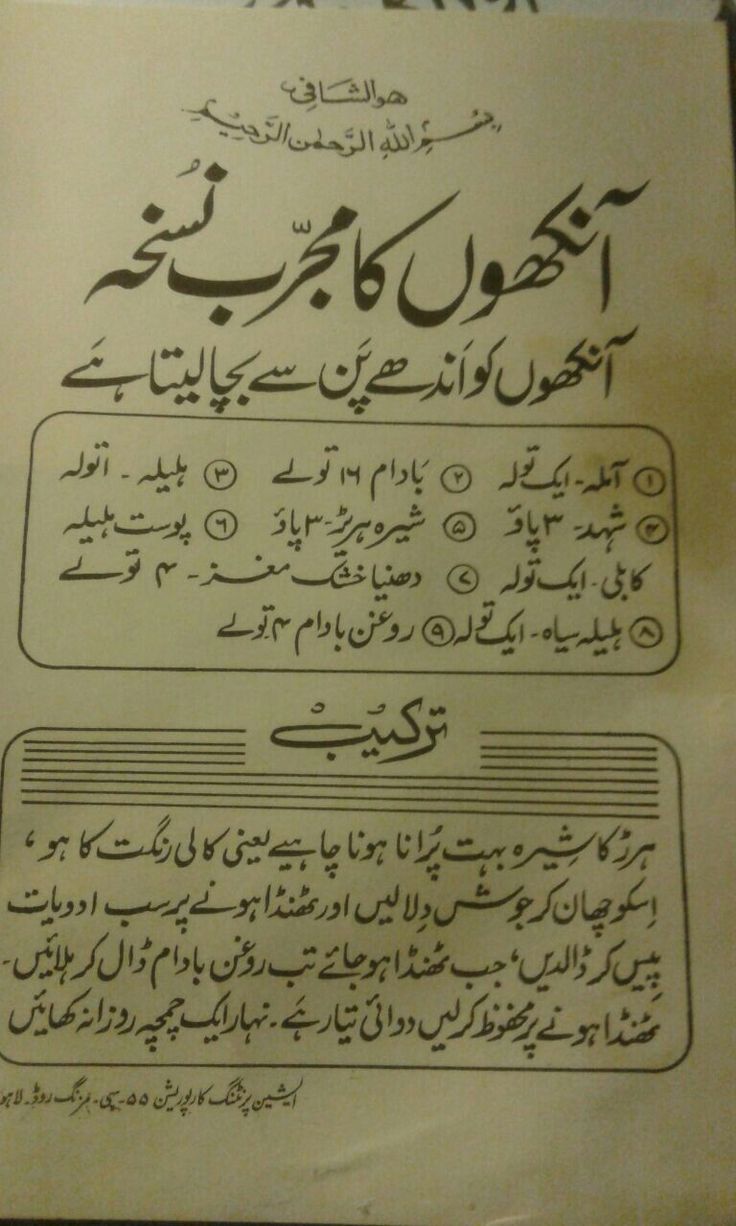 ھوالشافی
بِسْمِ اللّٰہِ الرَّحمٰن الرَّحِیْم
آنکھوں کا مجرّب نُسخہ
آنکھوں کو اَندھے پَن سے بچا لیتا ہَے
① آملہ - ایک تولہ ② بَادام ۱۶ تولے ③ ہلیلہ - ۱تولہ
④ شہد - ۳ پاؤ ⑤ شیرہ ہرڑ - ۳ پاؤ ⑥ پوست ہلیلہ
کابلی - ایک تولہ ⑦ دھنیا خشک مغز - ۴ تولے
⑧ ہلیلہ سیاہ - ایک تولہ ⑨ روغن بادام ۴ تولے
ترکیب
ہرڑ کا شِیرہ بہت پُرانا ہونا چاہیے یعنی کالی رنگت کا ہو،
اِسکو چھان کر جوش دِلالیں اور ٹھنڈا ہونے پر سب ادویات
پِیس کر ڈالدیں، جب ٹھنڈا ہو جائے تب روغن بادام ڈال کر ہلائیں۔
ٹھنڈا ہونے پر محفوظ کرلیں دوائی تیار ہَے۔ نہار ایک چمچہ روزانہ کھائیں
ایشین پرنٹنگ کارپوریشن ۵۵ - سی - مزنگ روڈ - لاہو